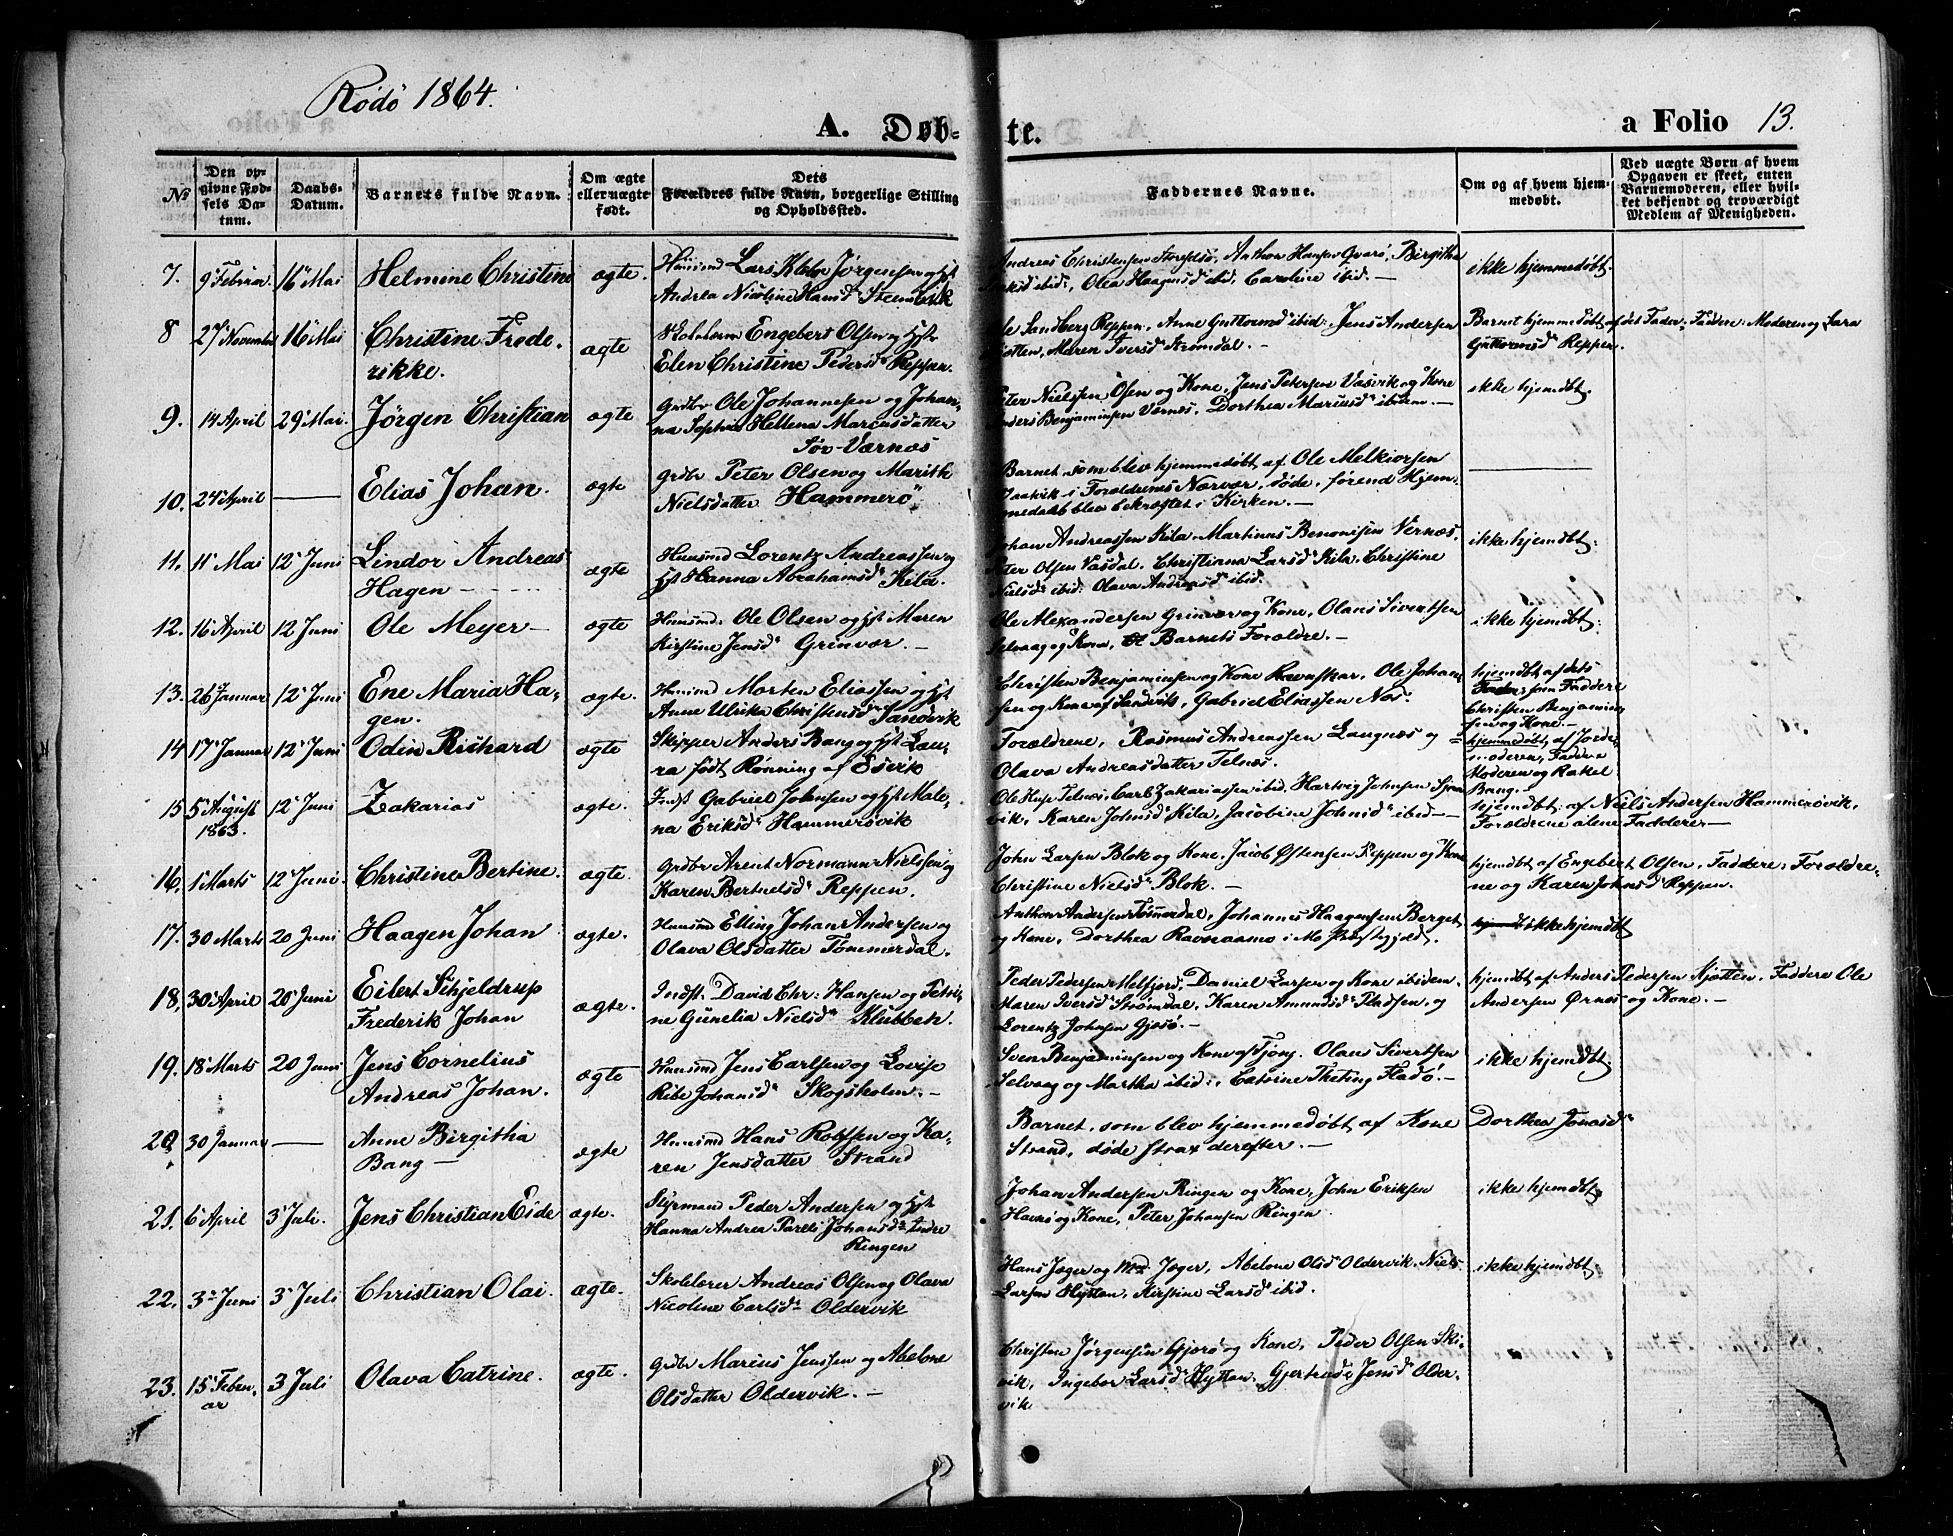 Rödö 1864.
A. Døb-
te.
a Folio 13.
№
Den op-
givne Fød-
sels Da-
tum.
Daabs-
Datum.
Barnets fulde Navn.
Om ægte
eller uægte
født.
Dets
Forældres fulde Navn, borgerlige Stilling
og Opholdssted.
Faddernes Navne.
Om og af hvem hjem-
medøbt.
Ved uægte Børn af hvem
Opgaven er skeet, enten
Barnemoderen, eller hvil-
ket bekjendt og troværdigt
Medlem af Menigheden.
7. 9 Februar 16 Mai Helmine Christine ægte. Huusmd Lars Jørgensen og Hst
Andrea Nicoline Hansd Stensvik
Andreas Christensen Anthon Hansen Birgitha
ibid, Olea Haagensd ibid, Caroline ibid. —
ikke hjemmedøbt.
8 27 November 16 Mai Christine Frede-
rikke. ægte Skolelærer Engebert Olsen og Hst
Elen Christine Pedersd Reppen.
Sandberg Reppen, Anne Guttormsd ibid: Jens Andersen
Maren Iversd Strømdal. —
Barnet hjemmedøbt af dets Fader, Faddere: Moderen og Sara
Guttormsd Reppen.
9. 14 April 29 Mai. Jörgen Christian ægte Grdbr Ole Johannesen og Johan-
na Sophia Hellena Marcusdatter
Sör-Værnæs
Peter Nielssen Ösen og Kone, Jens Petersen Vasvik og Kone
Anders Benjaminsen Værnæs, Dorthea Mariusd ibidem. —
ikke hjemdöbt.
10. 24 April — Elias Johan. ægte Grdbr Peter Olsen og Marith
Nielsdatter Hammerö
Barnet som blev hjemmedøbt af Ole Melkiorsen
i Forældrenes Nærvær, døde, førend Hjem-
medaab blev bekræftet i Kirken. —
11. 11 Mai 12 Juni Lindor Andreas
Hagen — ægte Huusmd Lorentz Andreassen og
Hst Hanna Abrahamsd Kila.
Johan Andreassen Kila, Martinus Benonisen Vernæs,
Peter Olsen Vasdal. Christiana Larsd Kila, Christine
Nielsd ibid: Olava Andreasd ibid.
ikke hjemdbt.
12. 16 April 12 Juni Ole Meyer — ægte Huusmd: Ole Olsen og Hst Maren
Kirstine Jensd Grinvær. —
Ole Alexandersen Grinvær og Kone, Olaus Sivertsen
Selvaag og Kone, Barnets Forældre. —
ikke hjemdbt.
13. 26 Januar 12 Juni Ene Maria Ha-
gen. ægte. Huusmd Morten Eliassen og Hst
Anne Ulrika Christensd Sandvik
Christen Benjaminsen og Kone Ravnskar, Ole Johan-
sen og Kone af Sandvik, Gabriel Eliassen Nor.
hjemdbt af dets
Fader, som Faddere
Christen Benjamin-
sen og Kone. —
14 17 Januar 12 Juni Odin Richard ægte Skipper Anders Bang og Hst Lau-
ra født Rönning af Esvik
Forældrene, Rasmus Andreassen Langnæs og
Olava Andreasdatter Telnæs.
hjemmedøbt af Jorde-
moderen, Faddere
Moderen og Rakel
Bang. —
15 5 August
1863. 12 Juni Zakarias ægte. Indst Gabriel Johnsen og Hst Male-
na Eriksd Hammersvik
Ole Telnæs, Carl Zakariassen ibid, Hartvig Johnsen
vik, Karen Johnsd Kila, Jacobine Johnsd ibid —
hjemdbt: af Niels Andersen Hammersvik,
Forældrene alene Faddere. —
16. 1 Marts 12 Juni. Christine Bertine. ægte. Grdbr Arent Normann Nielssen og
Karen Bertuelsd Reppen.
John Larsen Blok og Kone, Jacob Østensen Reppen og Kone
Christine Nielsd Blok. —
hjemdbt af Engebert Olsen, Faddere, Forældre-
ne og Karen Johnsd Reppen.
17. 30 Marts 20 Juni Haagen Johan ægte. Huusmd Elling Johan Andersen og
Olava Olsdatter Tömmerdal.
Anthon Andersen Tømmerdal, Johannes Haagensen Berget
og Kone, Dorthea Ravnaamo i Mo Præstegjeld.
ikke hjemdbt
18. 30 April 20 Juni Eilert Schjeldrup
Frederik Johan ægte. Indst. David Chr: Hansen og Petri-
ne Gunelia Nielsd Klubben.
Peder Pedersen Melfjord, Daniel Larsen og Kone ibidem.
Maren Iversd Strömdal, Karen Amundsd og
Lorentz Johnsen Gjæsö. —
hjemdbt af Anders Pedersen Kjøtten, Faddere Ole
Andersen Ørnæs og Kone. —
19. 18 Marts 20 Juni Jens Cornelius
Andreas Johan. ægte Huusmd Jens Carlsen og Lovise
Ribe Johansd Skogsholm. —
Sven Benjaminsen og Kone af Tjong. Olaus Sivertsen
Selvaag og Martha ibid:, Catrine Theting Fladö. —
ikke hjemdbt
20. 30 Januar — Anne Birgitha
Bang — ægte Huusmd Hans Robtsen og Ka-
ren Jensdatter Strand
Barnet, som blev hjemmedøbt af Kone
Strand, døde strax derefter. —
Dorthea Jonasd
21. 6 April 3 Juli. Jens Christian Eide ægte. Styrmand Peder Andersen og Hst
Hanna Andrea Parelli Johansd Indre
Ringen
Johan Andersen Ringen og Kone, John Eriksen
Havnö og Kone, Peter Johansen Ringen.
ikke hjemdbt.
22. 3 Juni 3 Juli Christian Olai. ægte. Skolelærer Andreas Olsen og Olava
Nicoline Carlsd Oldervik
Hans Jæger og Md Jæger, Abelone Olsd Oldervik, Niels
Larsen Hytten, Kirstine Larsd ibid.
ikke hjemdbt.
23. 15 Febru-
ar 3 Juli Olava Catrine. ægte. Grdbr Marius Jenssen og Abelone
Olsdatter Oldervik. —
Christen Jørgensen Gjersö og Kone, Peder Olsen Ski-
vik, Ingebor Larsd Hytten, Gjertrude Jensd Older-
vik